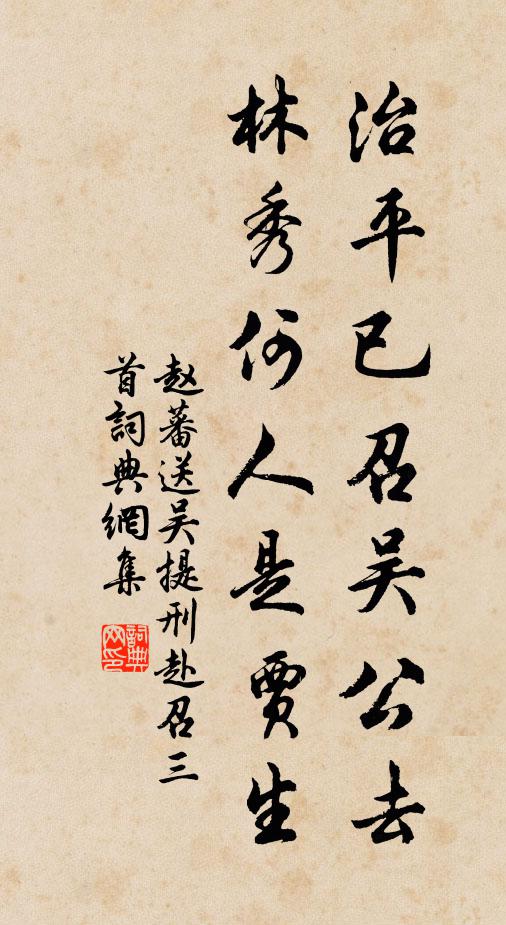 治平已召吴公去
林秀何人是賈生
赵蕃送吴提刑赴召三
首詞典網集
詞典
网印